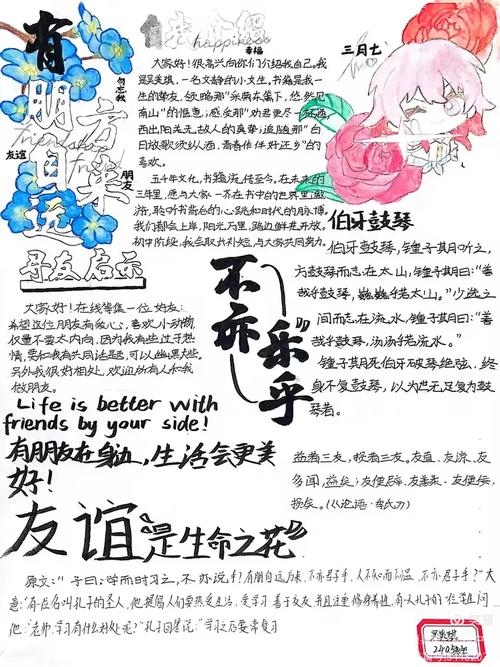 有朋自远方来
勿忘我
友谊
朋友
寻友启示
自我介绍
happiness
幸福
大家好!很高兴向你们介绍我自己。我
是吴美琪,一名文静的小女生。书籍是我一
生的挚友,领略那"采菊东篱下,悠然见
南山"的惬意;感受那"劝君更尽一杯酒
西出阳关无故人的真挚;追随那"白
日放歌须纵酒,青春作伴好还乡"的
喜欢。
五千年文化,书籍流传至今,在未来的
三年里,愿与大家一齐在书中的世界里遨
游,聆听书背后的心跳和时代的脉搏
我们都会上岸,阳光万里,路边鲜花开放,
初中阶段,我会取长补短,与大家共同努力。
三月七
伯牙鼓琴
伯牙鼓琴,锺子其听之,
方鼓琴而志在太山,锺子其曰:"善
哉乎鼓琴,巍巍乎若太山。"少选之
间而志在流水,锺子其曰:"善
哉乎鼓琴,汤汤乎若流水。"
锺子其死伯牙破琴绝弦,终
身不复鼓琴,以为世无足复为鼓
琴者。
不亦"乐乎
大家好!在线筹集一位好友:
希望这位朋友有爱心,喜欢小动物
仅量不要太内向,因为我有些过于热
情,要和我有共同话题,可以幽默大些。
另外我很好相处,欢迎所有人和我
做朋友。
Life is better with
friends by your side!
有朋友在身边,生活会更美
好!
益者三友,损者三友。友直、友谅、友
多闻,益矣;友便辟、友善柔、友便佞,
损矣。(《论语·季氏》)
友谊"是生命之花"
原文:"子曰:学而时习之,不亦说乎?有朋自远方来,不亦君子乎,人不知而不愠,不亦君子乎?"大
意:"有一位名叫孔子的圣人,他提倡人们要热爱生活,爱学习善于交友并且注重修身养性,有人孔子的一位学生问
他:"老师,学习有什么好处呢?"孔子回答说:"学习之后要常复习
吴美琪